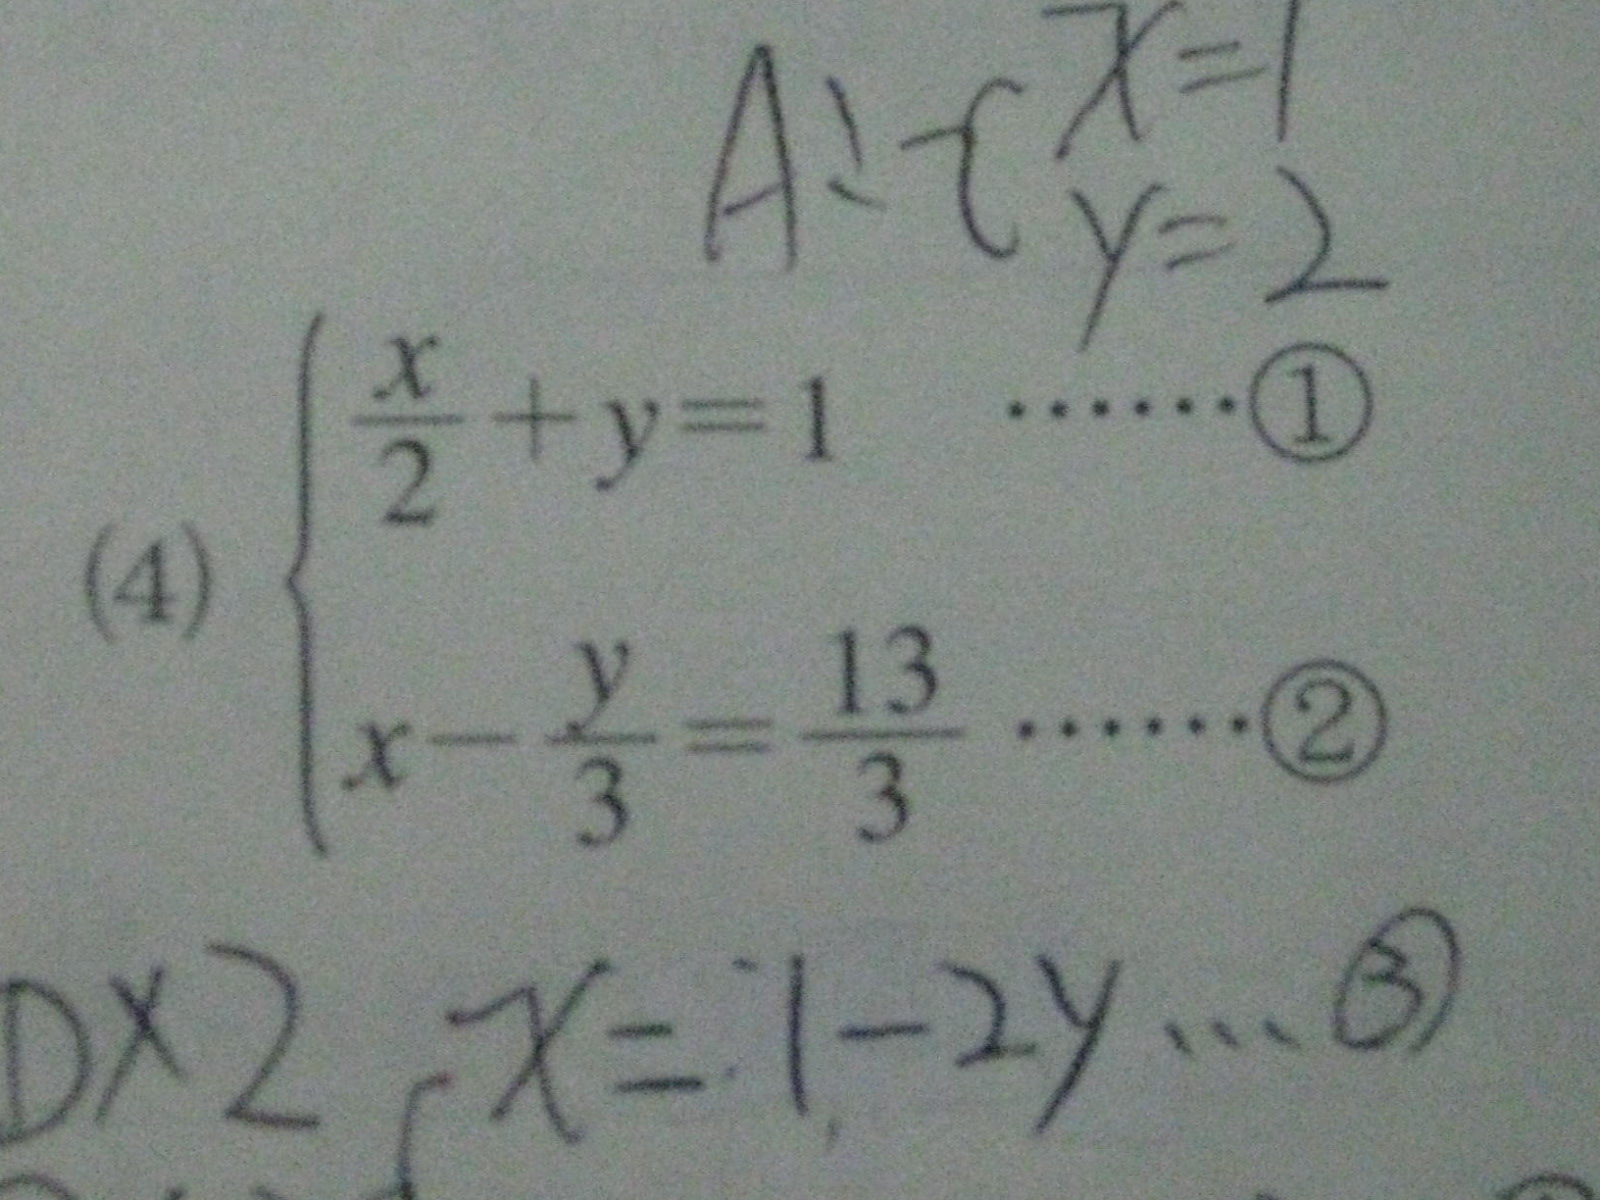 A: { x=1
y=2
(4) { x/2 + y = 1 ……①
x − y/3 = 13/3 ……②
①×2, x = 1 − 2y …③